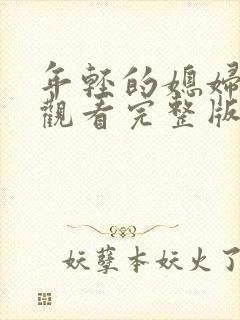 年輕的媳婦
觀看完整版
妖孽本妖火了